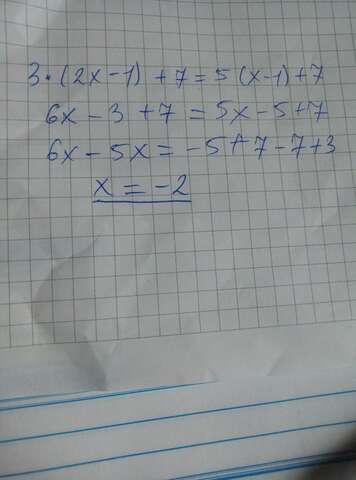 3 • (2x - 1) + 7 = 5 (x - 1) + 7
6x - 3 + 7 = 5x - 5 + 7
6x - 5x = -5 + 7 - 7 + 3
x = -2